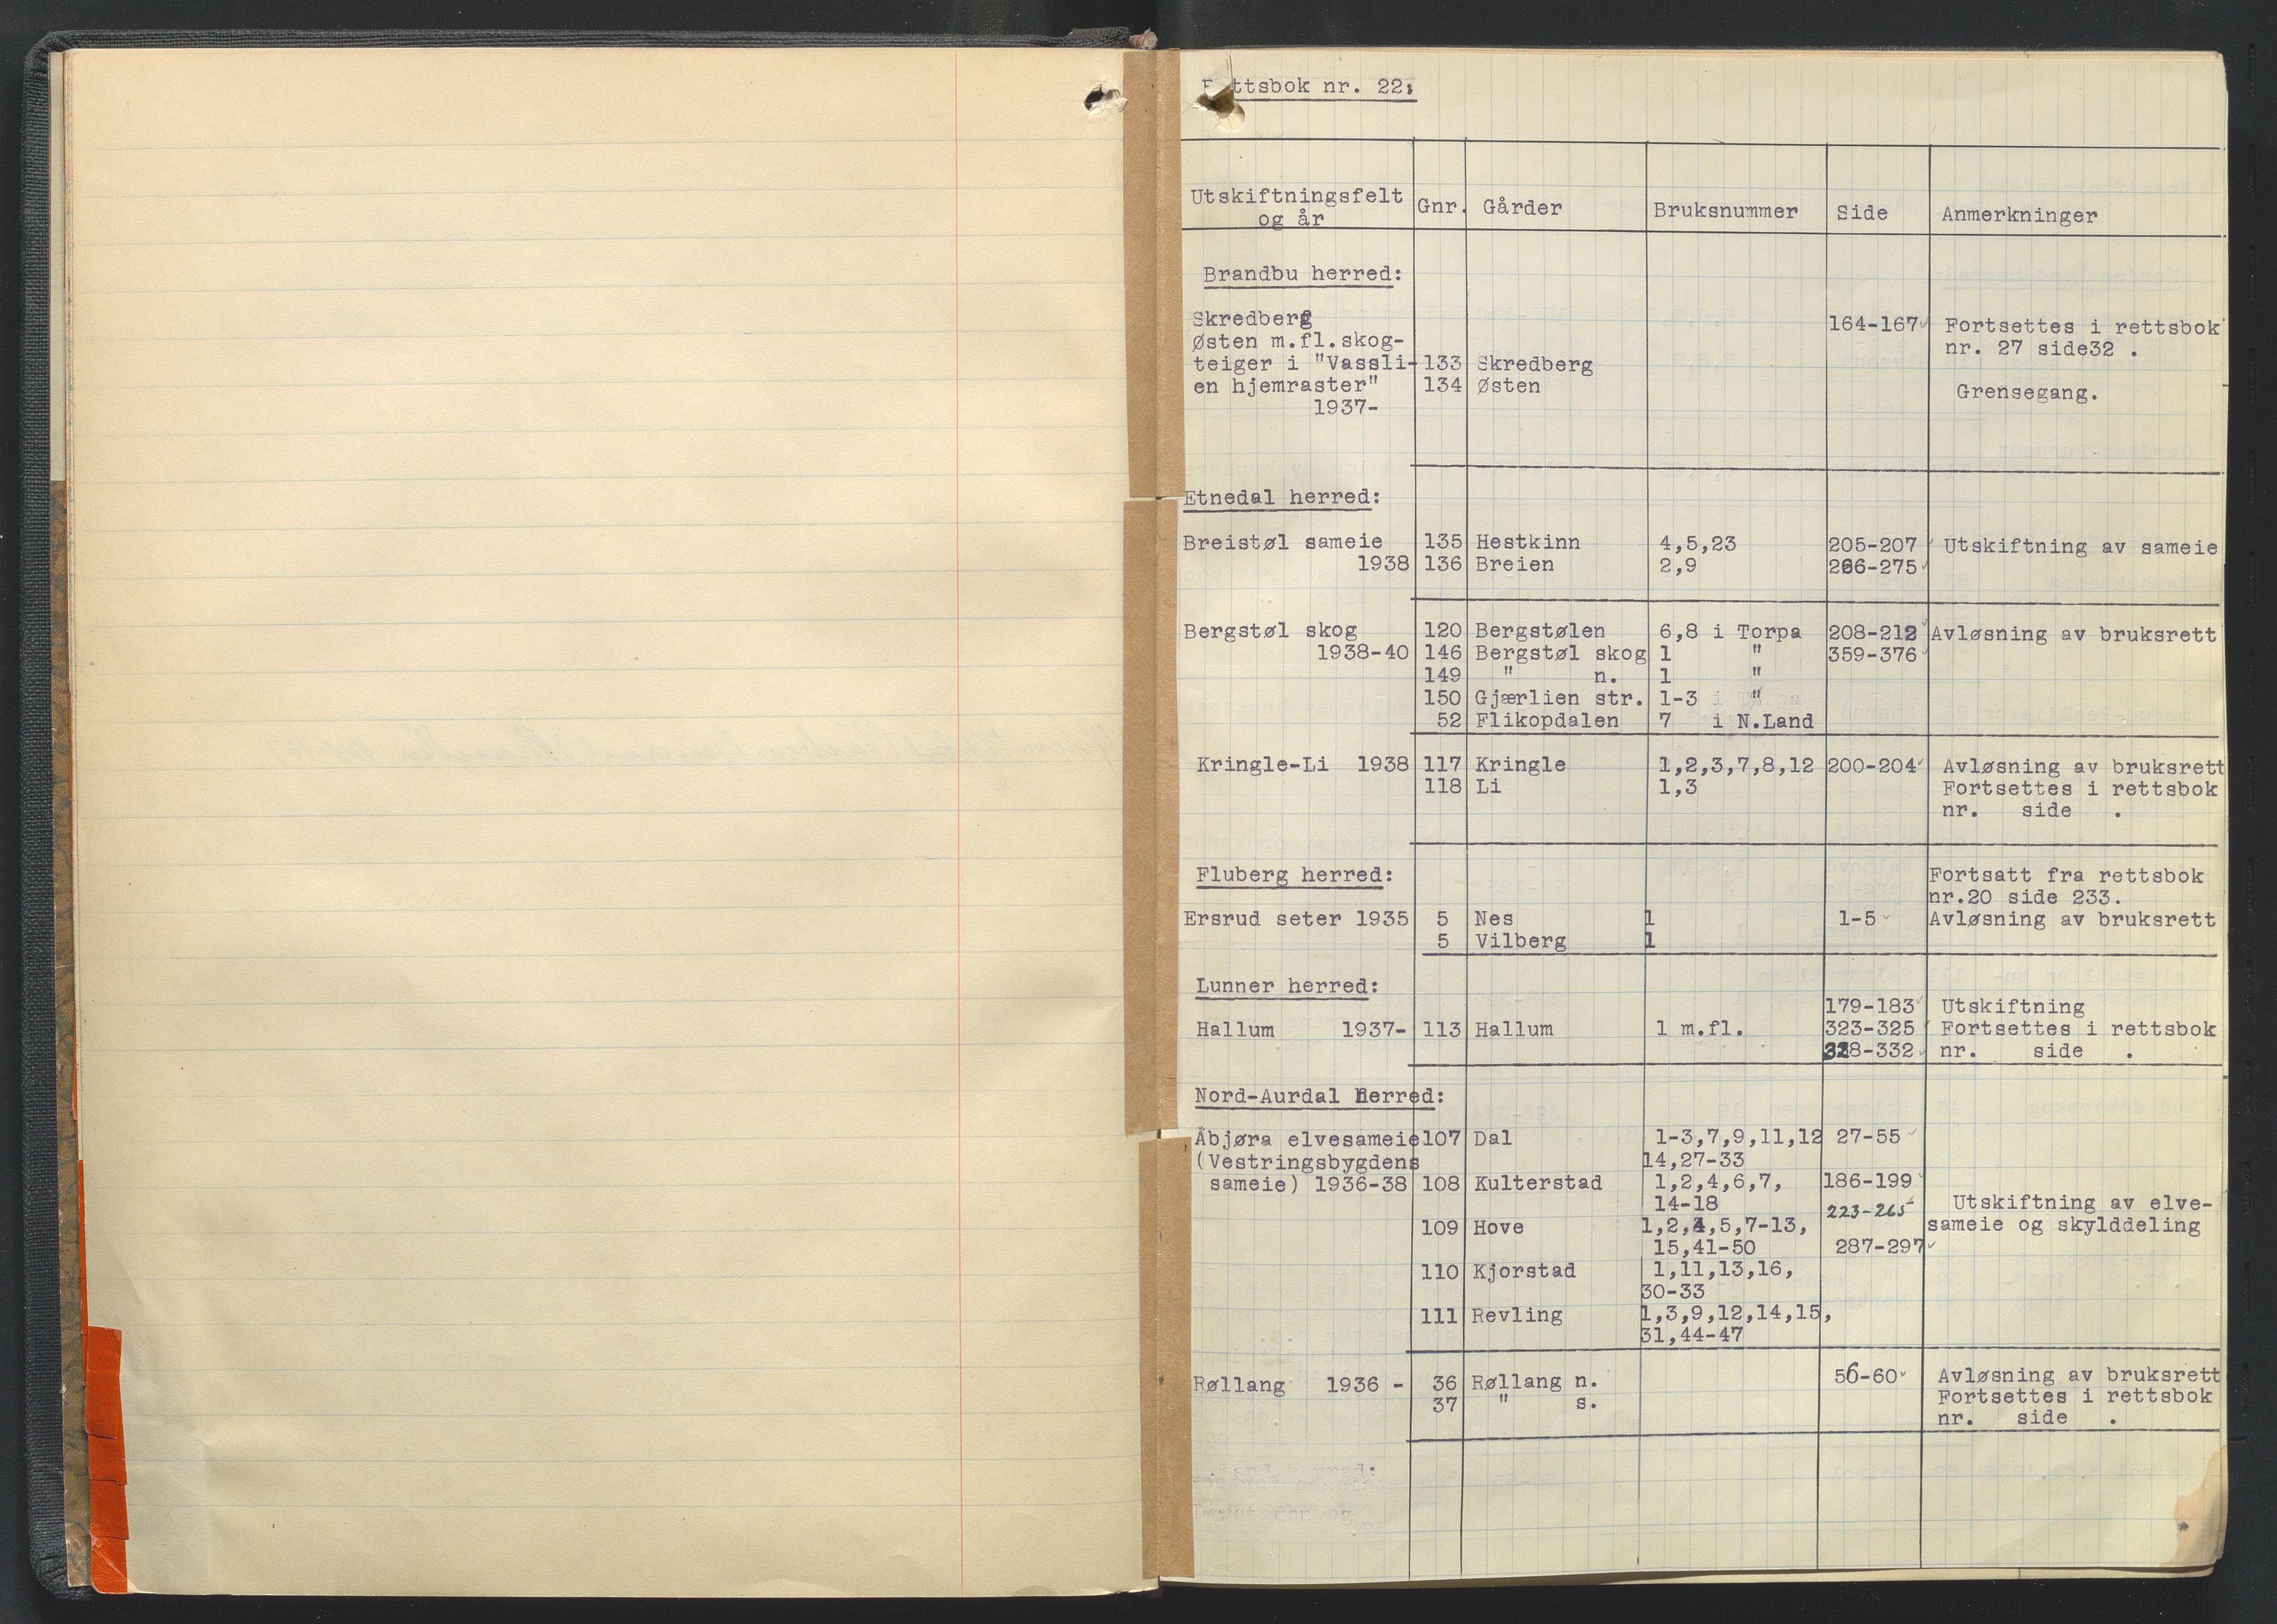 Rettsbok nr. 22:
Utskiftningsfelt og år | Gnr. | Gårder | Bruksnummer | Side | Anmerkninger
Brandbu herred:
Skredberg | 164-167 | Fortsettes i rettsbok
Østen m.fl.skog- | nr. 27 side32 .
teiger i "Vassli- | 133 | Skredberg
en hjemraster" | 134 | Østen | Grensegang.
1937-
Etnedal herred:
Breistøl sameie | 135 | Hestkinn | 4,5,23 | 205-207 | Utskiftning av sameie
1938 | 136 | Breien | 2,9 | 266-275
Bergstøl skog | 120 | Bergstølen | 6,8 i Torpa | 208-212 | Avløsning av bruksrett
1938-40 | 146 | Bergstøl skog | 1 " | 359-376
149 | " n. | 1 "
150 | Gjærlien str. | 1-3 "
52 | Flikopdalen | 7 i N.Land
Kringle-Li 1938 | 117 | Kringle | 1,2,3,7,8,12 | 200-204 | Avløsning av bruksrett
118 | Li | 1,3 | Fortsettes i rettsbok
nr. side .
Fluberg herred: | Fortsatt fra rettsbok
nr.20 side 233.
Ersrud seter 1935 | 5 | Nes | 1 | 1-5 | Avløsning av bruksrett
5 | Vilberg | 1
Lunner herred:
179-183 | Utskiftning
Hallum 1937- | 113 | Hallum | 1 m.fl. | 323-325 | Fortsettes i rettsbok
328-332 | nr. side .
Nord-Aurdal herred:
Åbjøra elvesameie | 107 | Dal | 1-3,7,9,11,12 | 27-55
(Vestringsbygdens | 14,27-33
sameie) 1936-38 | 108 | Kulterstad | 1,2,4,6,7, | 186-199
14-18 | 223-265 | Utskiftning av elve-
109 | Hove | 1,2,4,5,7-13, | sameie og skylddeling
15,41-50 | 287-297
110 | Kjorstad | 1,11,13,16,
30-33
111 | Revling | 1,3,9,12,14,15,
31,44-47
Røllang 1936 - | 36 | Røllang n. | 56-60 | Avløsning av bruksrett
37 | " s. | Fortsettes i rettsbok
nr. side .